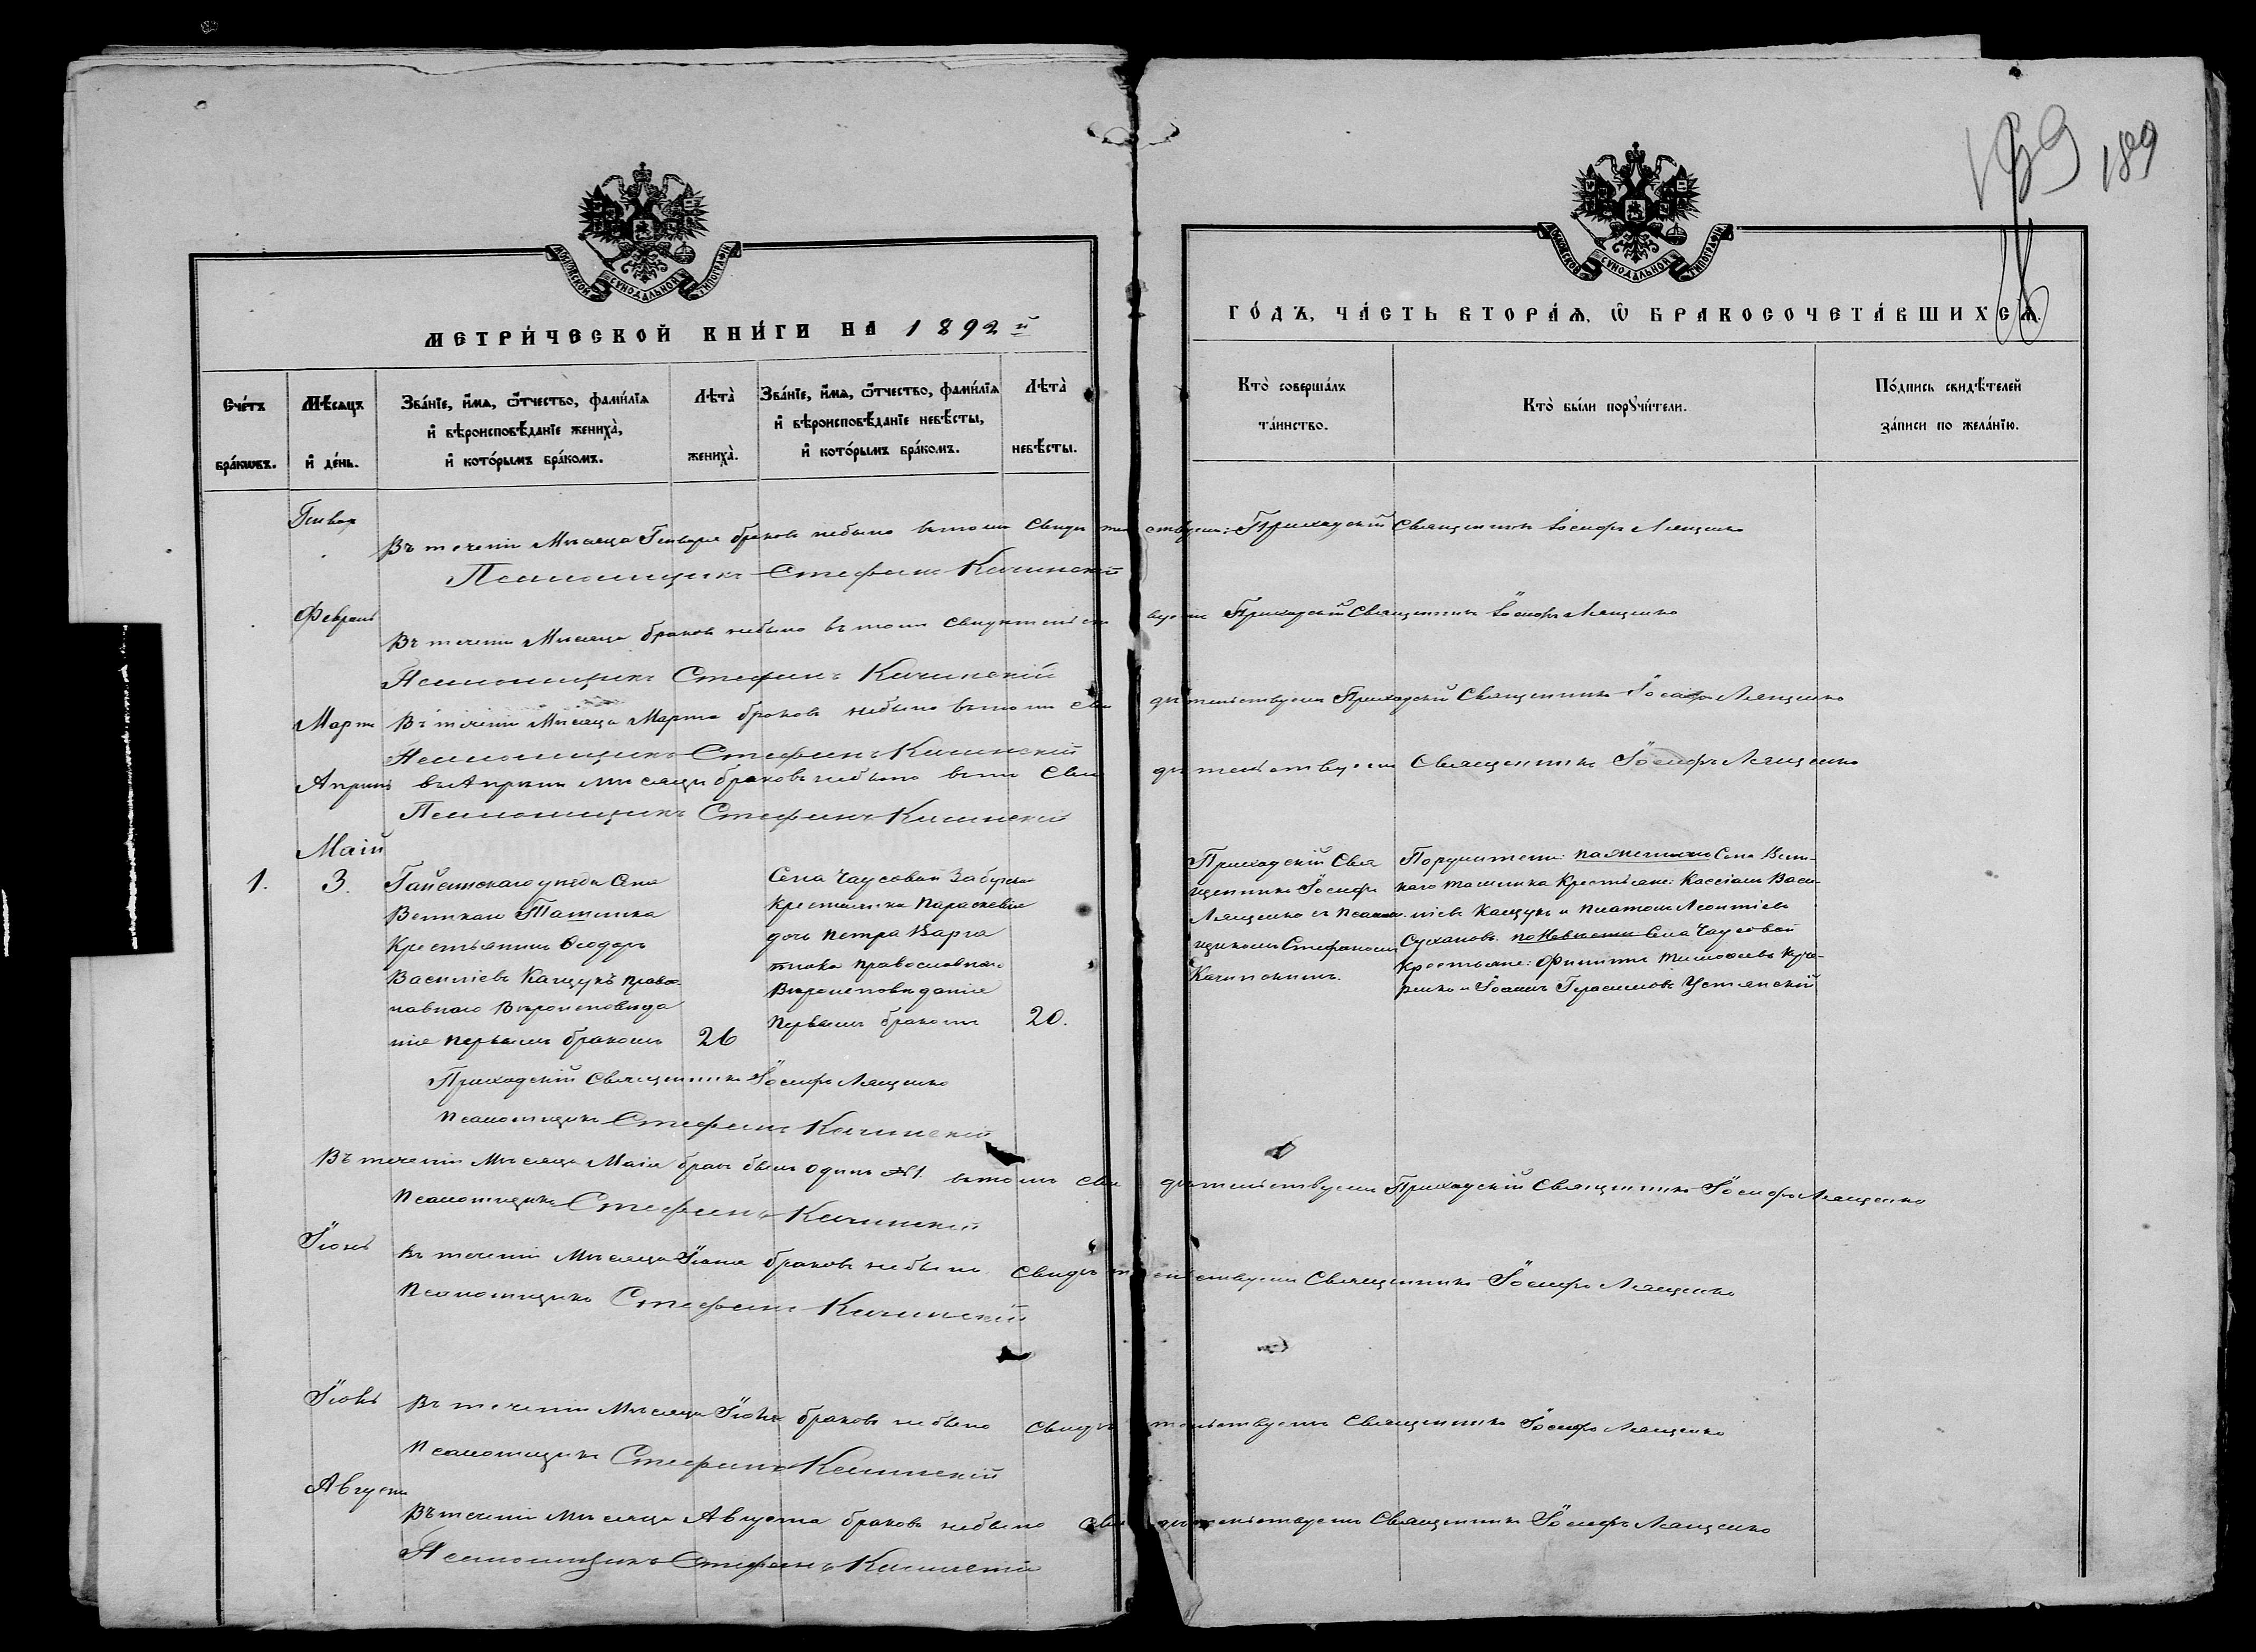 189 189
МОСКОВСКОЙ СѴНОДАЛЬНОЙ ТИПОГРАФІИ
МОСКОВСКОЙ СѴНОДАЛЬНОЙ ТИПОГРАФІИ
МЕТРИ́ЧЕСКОЙ КНИ́ГИ НА 1892й
ГО́ДЪ, ЧА́СТЬ ВТОРА́Ѧ, Ѽ БРАКОСОЧЕТА́ВШИХСѦ.
Сче́тъ бра́кѡвъ.
Мѣ́сѧцъ и҆ де́нь.
Зва́нїе, и҆́мѧ, ѻ҆́тчество, фами́лїѧ и҆ вѣроисповѣ́данїе жениха̀, и҆ кото́рымъ бра́комъ.
Лѣта̀ жениха̀.
Зва́нїе, и҆́мѧ, ѻ҆́тчество, фами́лїѧ и҆ вѣроисповѣ́данїе невѣ́сты, и҆ кото́рымъ бра́комъ.
Лѣта̀ невѣ́сты.
Кто̀ соверша́лъ та́инство.
Кто̀ бы́ли порꙋчи́тели.
По́дпись свидѣ́телей за́писи по жела́нїю.
Генвар
Въ теченіи Мѣсяца Генваря браковъ небыло вътомъ Свидѣтельствуемъ: Приходскій Священникъ Іосифъ Лященко
Псаломщикъ Стефанъ Качинскій
Февраль
Въ теченіи Мѣсяца браковъ небыло вътомъ Свидѣтельствуемъ Приходскій Священникъ Іосифъ Лященко
Псаломщикъ Стефанъ Качинскій
Мартъ Въ теченіи Мѣсяца Марта браковъ небыло вътомъ Свидѣтельствуемъ Приходскій Священникъ Іосифъ Лященко
Псаломщикъ Стефанъ Качинскій
Апрѣль въ Апрѣлѣ мѣсяцѣ браковъ небыло Свидѣтельствуемъ Священникъ Іосифъ Лященко
Псаломщикъ Стефанъ Качинскій
Маій
1. 3.
Гайсинскаго уѣзда Села
Великаго Ташлыка
Крестьянинъ Ѳеодоръ
Василіевъ Кащукъ право
славнаго Вѣроисповѣда
нія первымъ бракомъ
26
Села Чаусовой Забугска
Крестьянка Параскевія
дочь Петра Варга
православнаго
Вѣроисповѣданія
первымъ бракомъ
20.
Приходскій Свя
щенникъ Іосифъ
Лященко съ Псалом
щикомъ Стефаномъ
Качинскимъ.
Поручители: по женихѣ Села Вели-
каго Ташлыка Крестьяне: Кассіанъ Васи-
ліевъ Кащукъ и Платонъ Леонтіевъ
Сухановъ. по Невѣстѣ Села Чаусовой
Крестьяне: Филиппъ Тимоѳеевъ Куче-
ренко и Іоаннъ Герасимовъ Устянскій
Приходскій Священникъ Іосифъ Лященко
Псаломщикъ Стефанъ Качинскій
Въ теченіи Мѣсяца Маія бракъ былъ одинъ №1. вътомъ Свидѣтельствуемъ Приходскій Священникъ Іосифъ Лященко
Псаломщикъ Стефанъ Качинскій
Іюнь
Въ теченіи Мѣсяца Іюня браковъ небыло Свидѣтельствуемъ Священникъ Іосифъ Лященко
Псаломщикъ Стефанъ Качинскій
Іюль Въ теченіи Мѣсяца Іюля браковъ небыло Свидѣтельствуемъ Священникъ Іосифъ Лященко
Псаломщикъ Стефанъ Качинскій
Августъ
Въ теченіи мѣсяца Августа браковъ небыло Свидѣтельствуемъ Священникъ Іосифъ Лященко
Псаломщикъ Стефанъ Качинскій